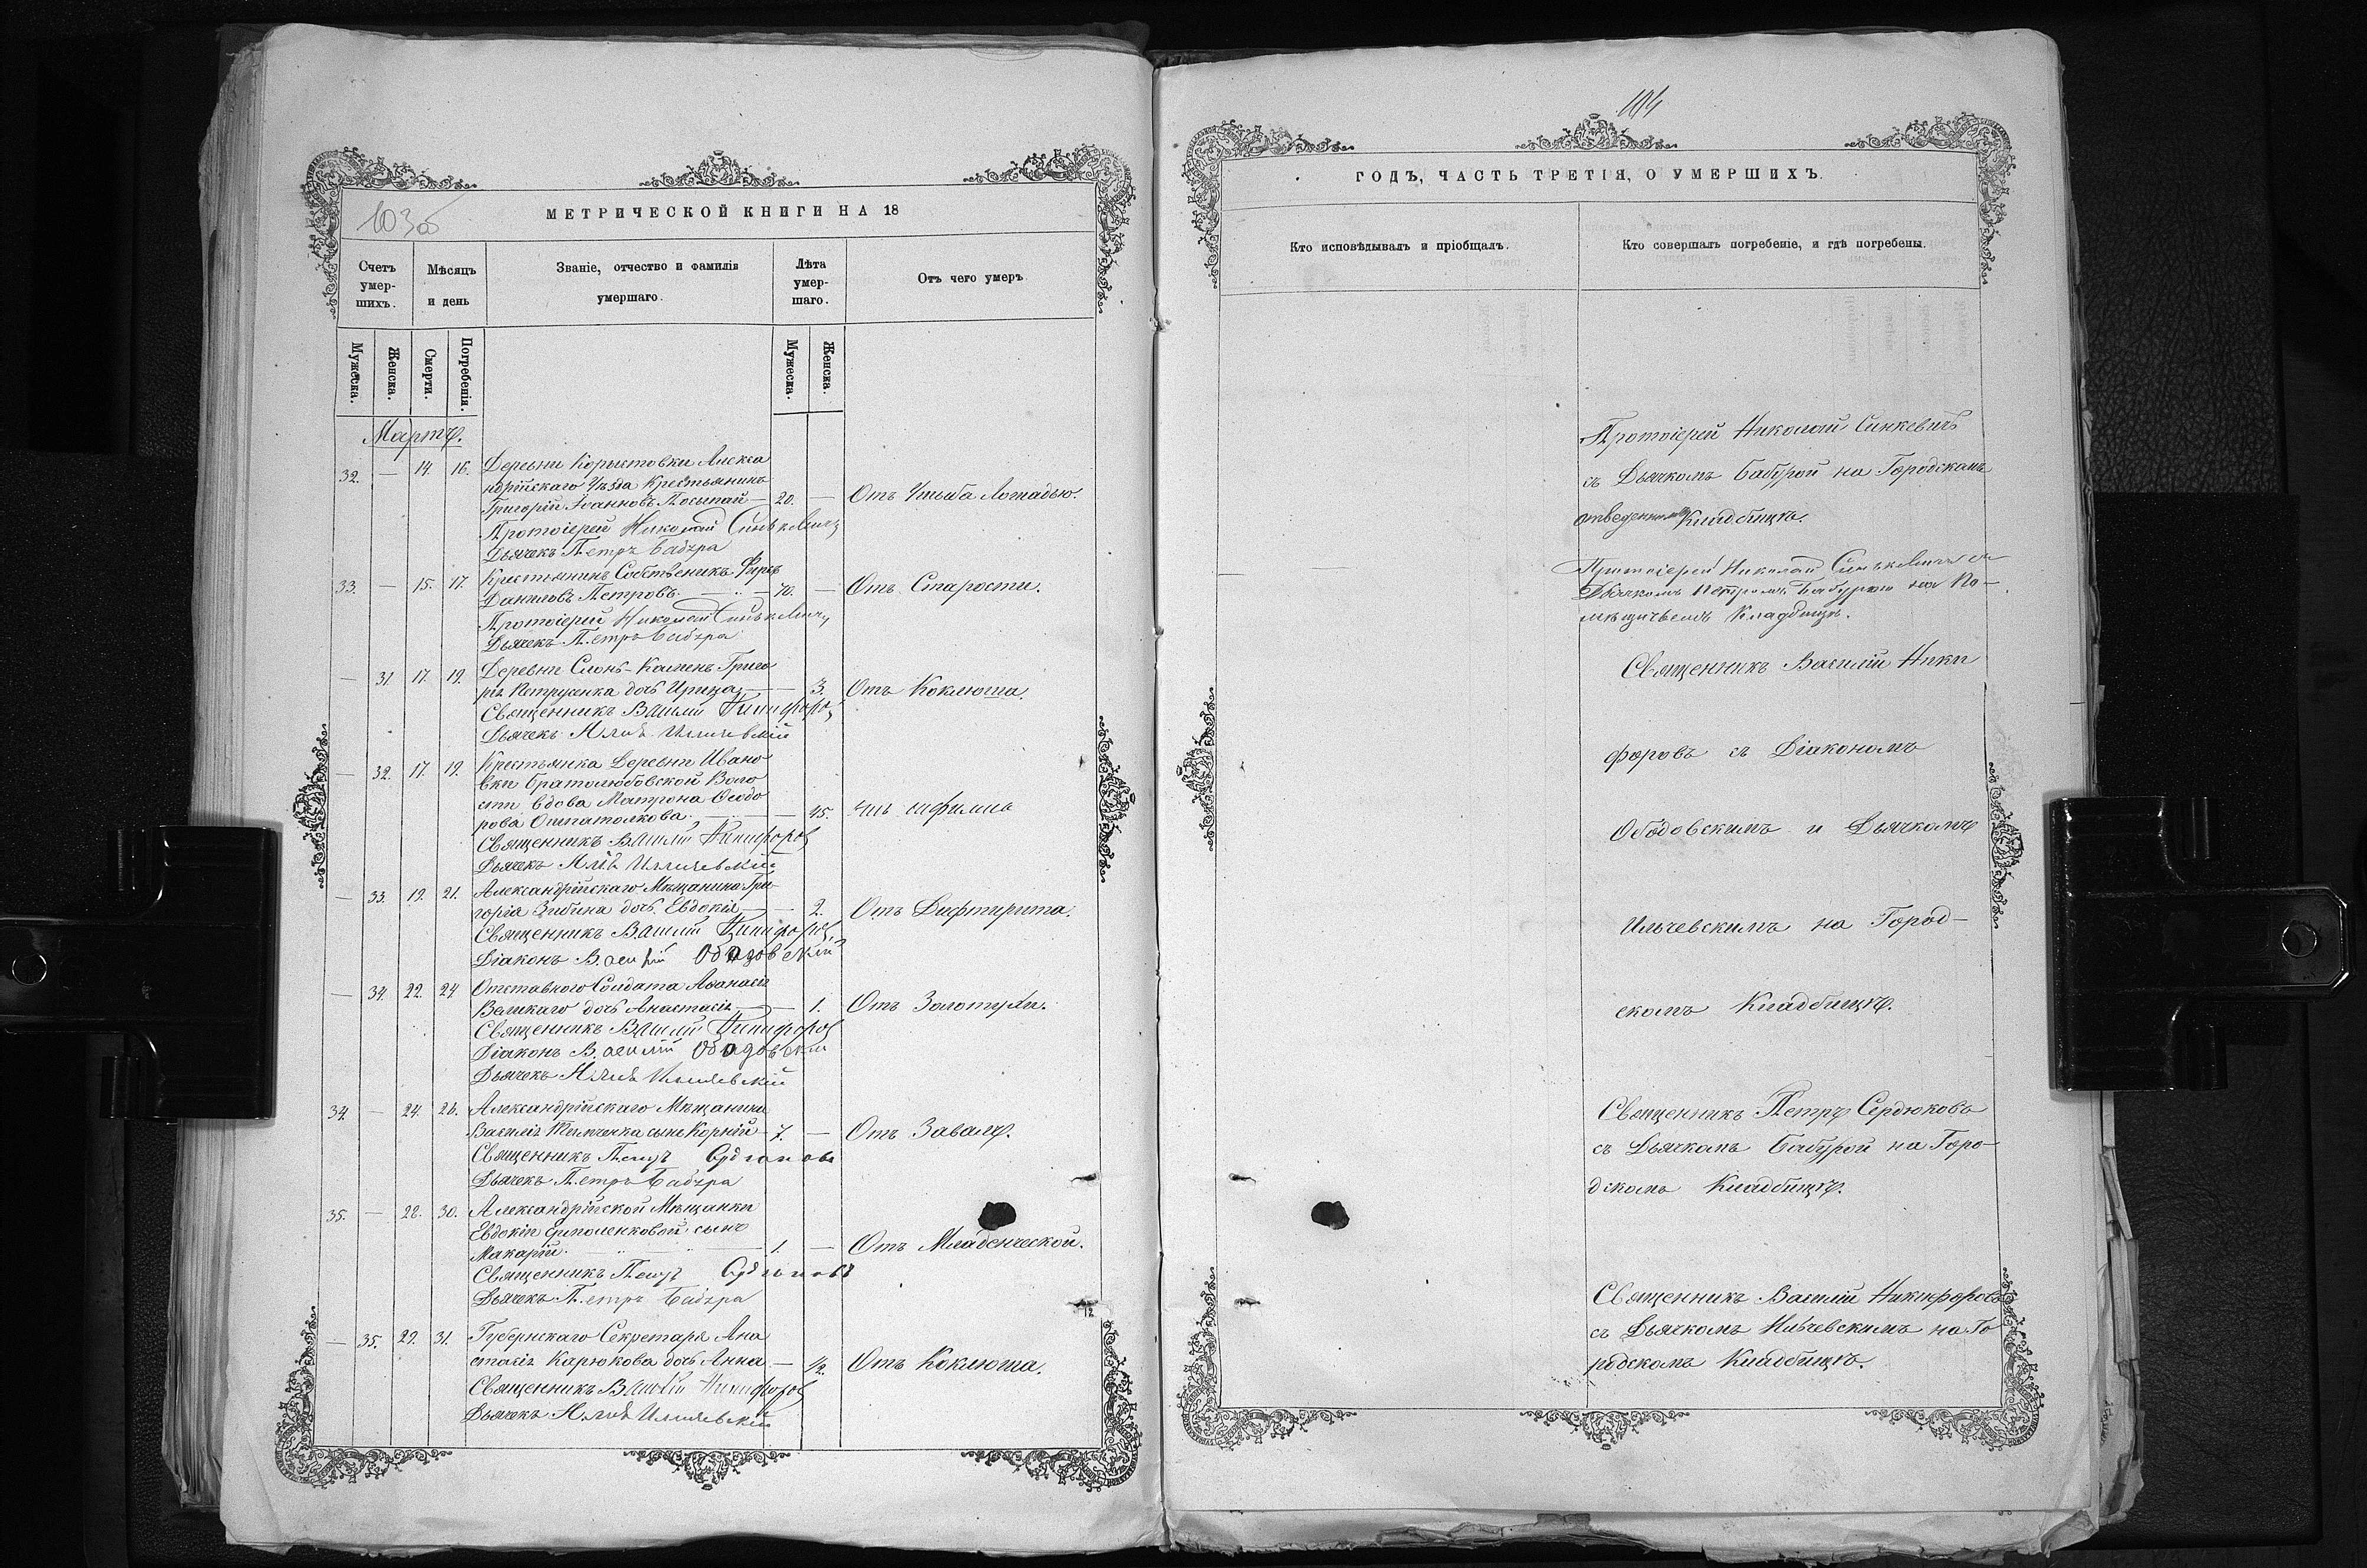 103 об
МЕТРИЧЕСКОЙ КНИГИ НА 18
Счетъ умер-шихъ.
Мѣсяцъ и день
Званіе, отчество и фамилія умершаго.
Лѣта умер-шаго.
Отъ чего умеръ
Мужеска.
Женска.
Смерти.
Погребенія.
Мужеска.
Женска.
Мартъ.
32. — 14. 16. Деревни Корыстовки Алекса
ндрійскаго Уѣзда Крестьянинъ
Григорій Іоанновъ Посыпай — 20. — Отъ Ушыба Лошадью.
Протоіерей Николай Синькевичъ
Дьячекъ Петръ Бабура
33. — 15. 17. Крестьянинъ Собственикъ
Даниловъ Петровъ. — 70. — Отъ Старости.
Протоіерей Николай Синькевичъ
Дьячекъ Петръ Бабура
— 31. 17. 19. Деревни Григо
рія Петрусенка дочь Ирина — — 3. Отъ Коклюша.
Священникъ Василій Никифоровъ
Дьячекъ Илія Ильчевскій
— 32. 17. 19. Крестьянка Деревни Ивано
вки Братолюбовской Воло
сти вдова Матрона Ѳеодо
рова — — 45. сифилиса
Священникъ Василій Никифоровъ
Дьячекъ Илія Ильчевскій
— 33. 19. 21. Александрійскаго Мѣщанина Гри-
горія Зибина дочь Евдокія — — 2. Отъ Дифтирита.
Священникъ Василій Никифоровъ
Діаконъ Василій Ободовскій
— 34. 22. 24 Отставного Солдата Аѳанасія
Великаго дочь Анастасія — — 1. Отъ Золотухи.
Священникъ Василій Никифоровъ
Діаконъ Василій Ободовскій
Дьячекъ Илія Ильчевскій
34. — 24. 26. Александрійскаго Мѣщанина
Василія сынъ Корній — 7. — Отъ Заваловъ.
Священникъ Петръ Сердюковъ
Дьячекъ Петръ Бабура
35. — 28. 30. Александрійской Мѣщанки
Евдокіи Ермоленковой сынъ
Макарій. — 1. — Отъ Младенческой.
Священникъ Петръ Сердюковъ
Дьячекъ Петръ Бабура
— 35. 29. 31. Губернскаго Секретаря Ана
стасія Карюкова дочь Анна — ½. Отъ Коклюша.
Священникъ Василій Никифоровъ
Дьячекъ Илія Ильчевскій
104
ГОДЪ, ЧАСТЬ ТРЕТІЯ, О УМЕРШИХЪ.
Кто исповѣдывалъ и пріобщалъ.
Кто совершалъ погребеніе, и гдѣ погребены.
Протоіерей Николай Синкевичъ
съ Дьячкомъ Бабурой на Городскомъ
отведенномъ Кладбищѣ.
Протоіерей Николай Синькевичъ съ
Дьячкомъ Петромъ Бабурою на По-
мѣщичьемъ Кладбищѣ.
Священникъ Василій Ники
форовъ съ Діакономъ
Ободовскимъ и Дьячкомъ
Ильчевскимъ на Город-
скомъ Кладбищѣ.
Священникъ Петръ Сердюковъ
съ Дьячкомъ Бабурой на Горо-
дскомъ Кладбищѣ.
Священникъ Василій Никифоровъ
съ Дьячкомъ Ильчевскимъ на Го
родскомъ Кладбищѣ.